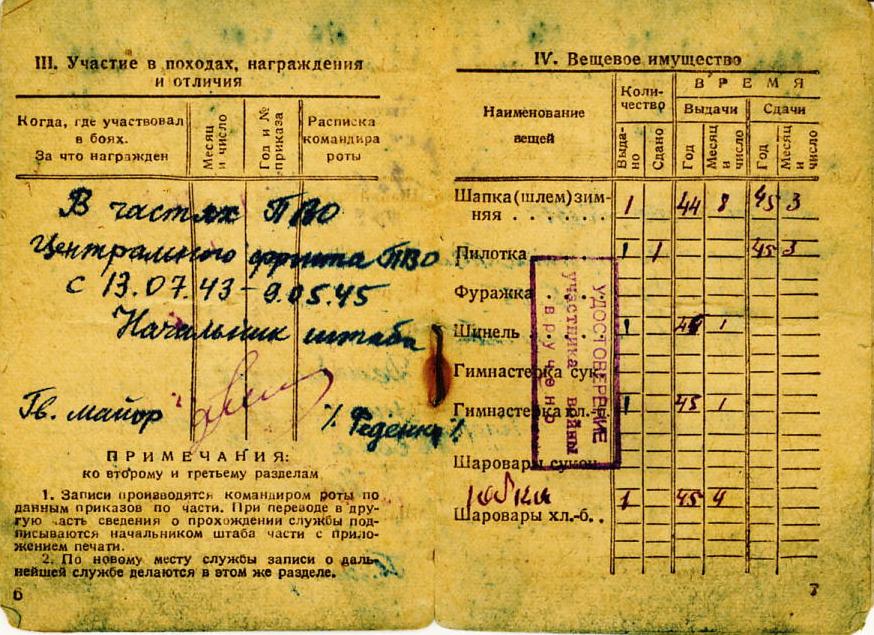 III. Участие в походах, награждения
и отличия
Когда, где участвовал
в боях.
За что награжден
Месяц
и число
Год и №
приказа
Расписка
командира
роты
В частях ПВО
Центрального фронта ПВО
с 13.07.43 – 9.05.45
Начальник штаба
Гв. майор
/ Феденко /
ПРИМЕЧАНИЯ:
ко второму и третьему разделам
1. Записи производятся командиром роты по
данным приказов по части. При переводе в дру-
гую часть сведения о прохождении службы под-
писываются начальником штаба части с прило-
жением печати.
2. По новому месту службы записи о даль-
нейшей службе делаются в этом же разделе.
6
IV. Вещевое имущество
Наименование
вещей
Коли-
чество
ВРЕМЯ
Выдачи
Сдачи
Выда-
но
Сдано
Год
Месяц
и
число
Год
Месяц
и
число
Шапка (шлем) зим-
няя . . . . . 1 44 8 45 3
Пилотка 1 1 45 3
Фуражка . . .
Шинель . . 1 1
Гимнастерка сук.
Гимнастерка хл.-б. 1 45 1
Шаровары сукон.
юбка
Шаровары хл.-б. . 1 45 4
УДОСТОВЕРЕНИЕ
участника войны
вручено
7